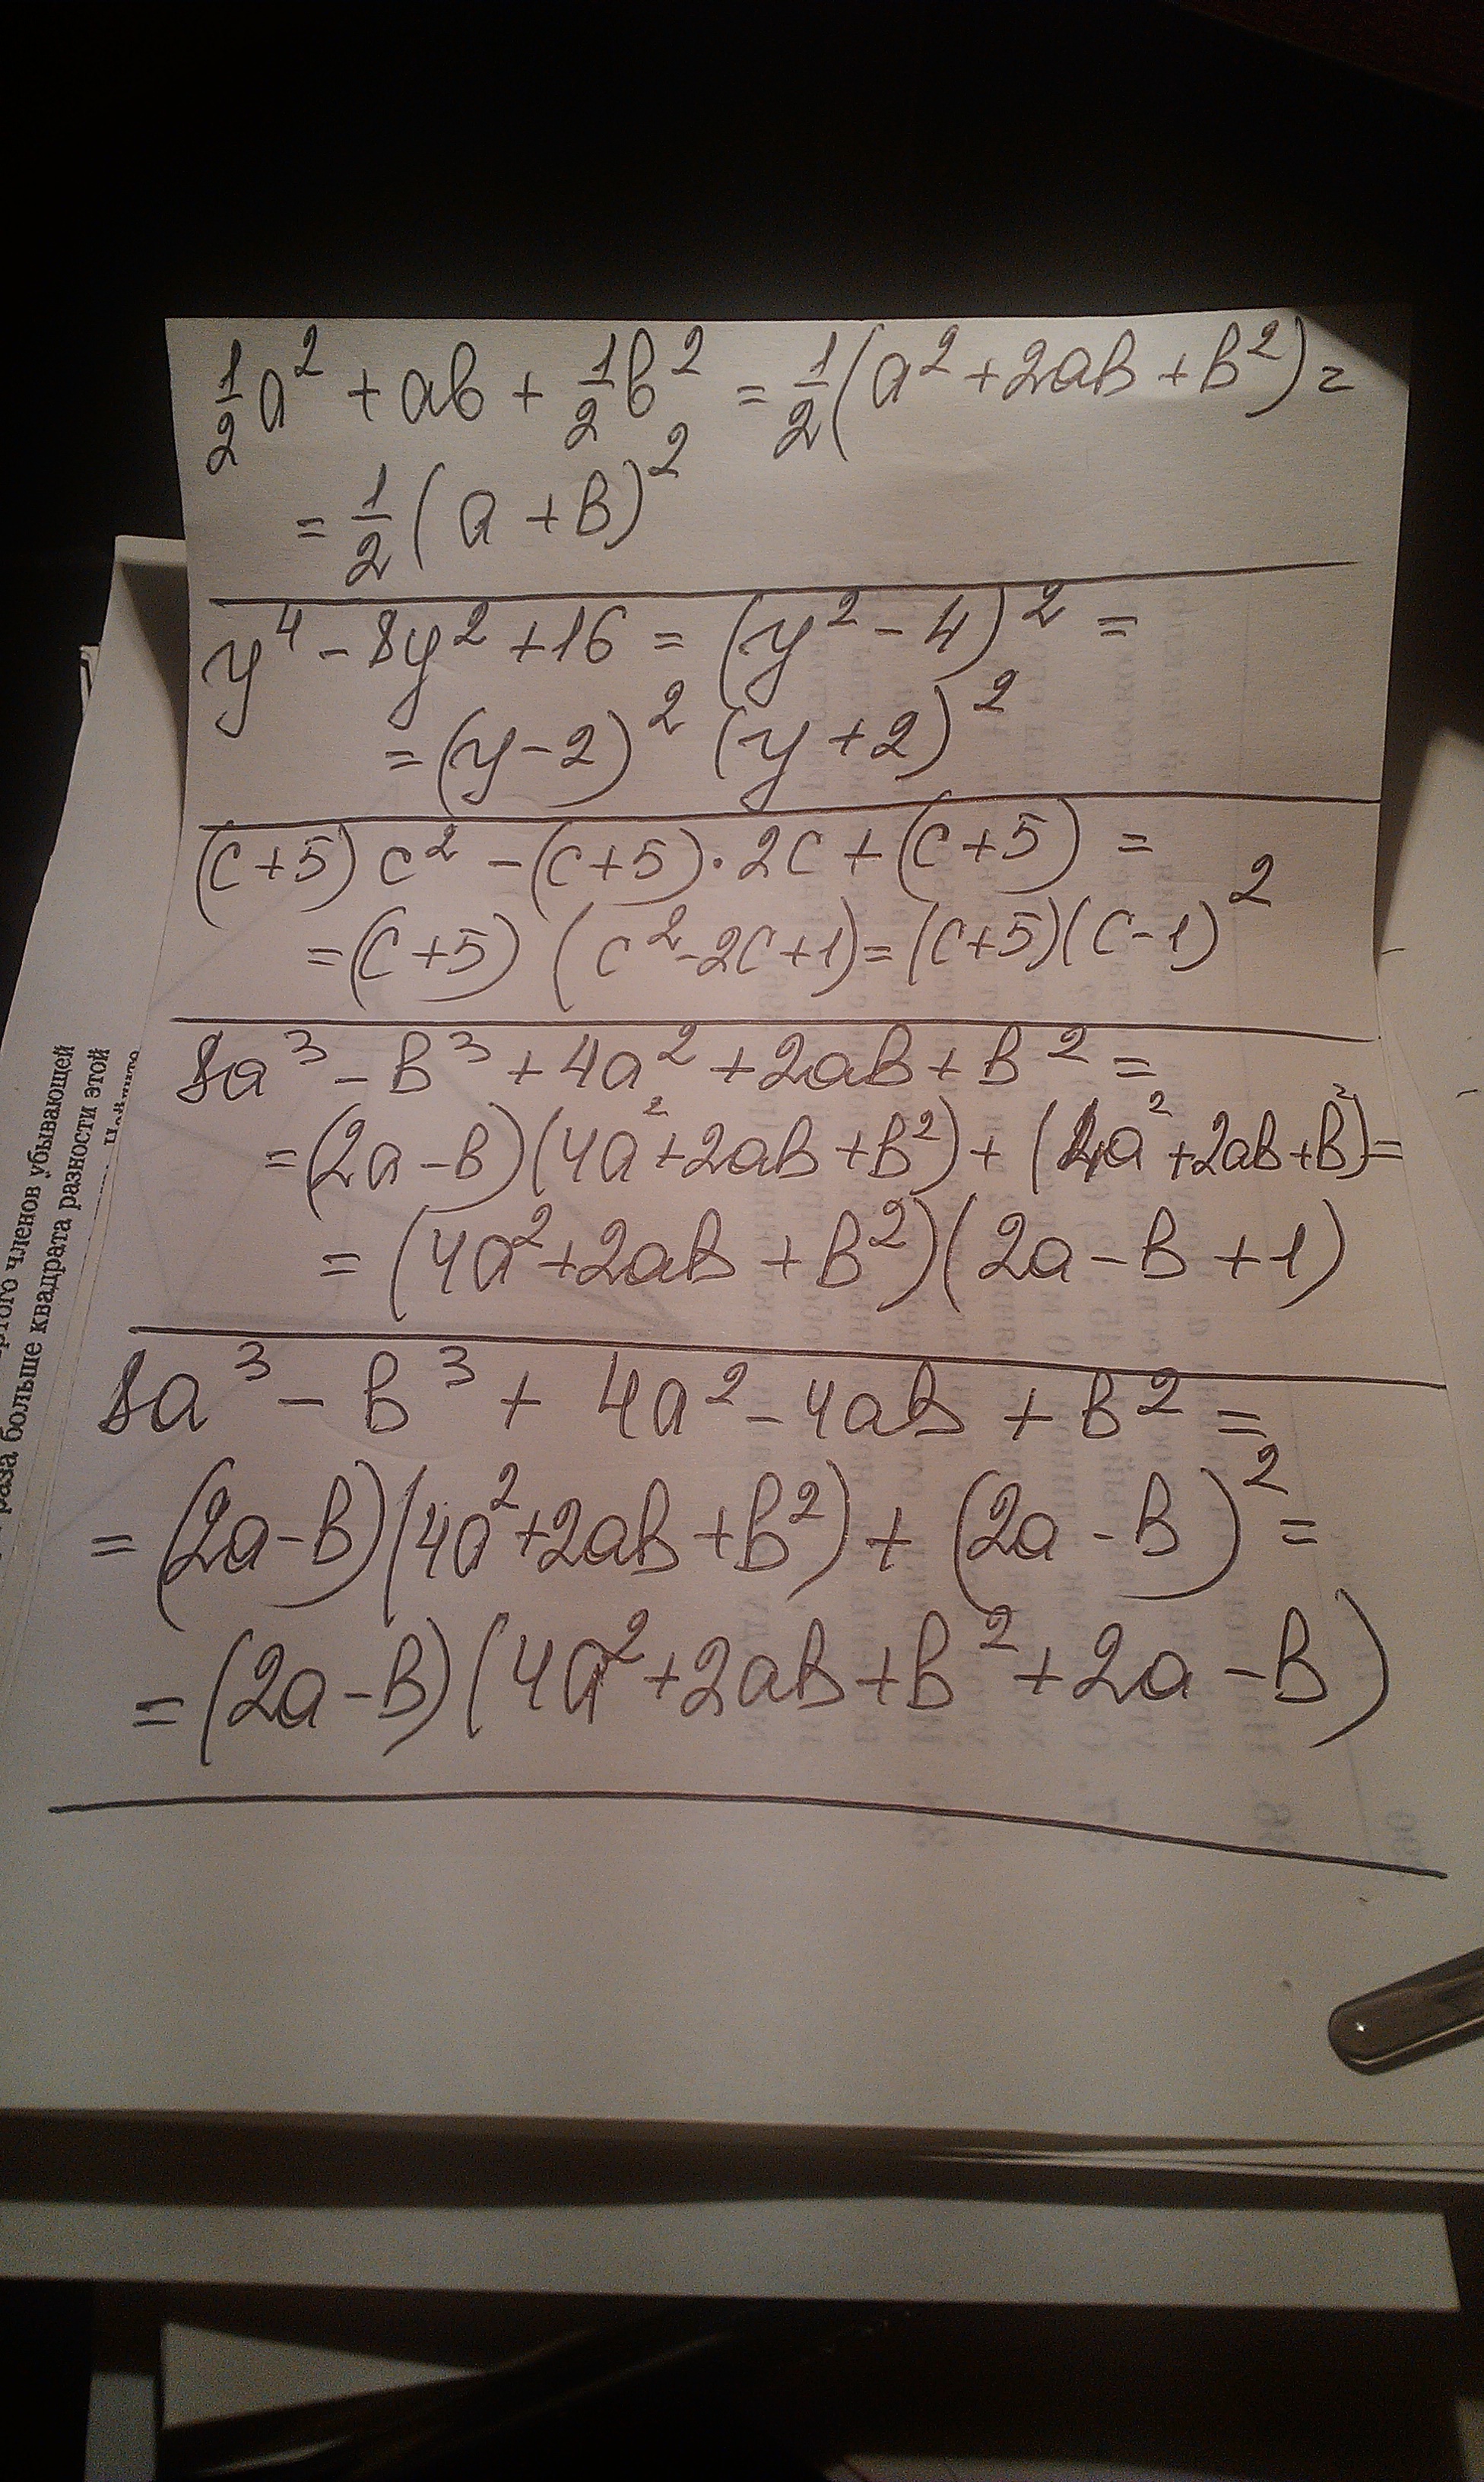 ½a² + ab + ½b² = ½(a² + 2ab + b²) =
= ½(a + b)²
y⁴ - 8y² + 16 = (y² - 4)² =
= (y - 2)² (y + 2)²
(c + 5) c² - (c + 5) · 2c + (c + 5) =
= (c + 5) (c² - 2c + 1) = (c + 5)(c - 1)²
8a³ - b³ + 4a² + 2ab + b² =
= (2a - b)(4a² + 2ab + b²) + (4a² + 2ab + b²) =
= (4a² + 2ab + b²)(2a - b + 1)
8a³ - b³ + 4a² - 4ab + b² =
= (2a - b)(4a² + 2ab + b²) + (2a - b)² =
= (2a - b)(4a² + 2ab + b² + 2a - b)
членов убывающей
раза больше квадрата разности этой